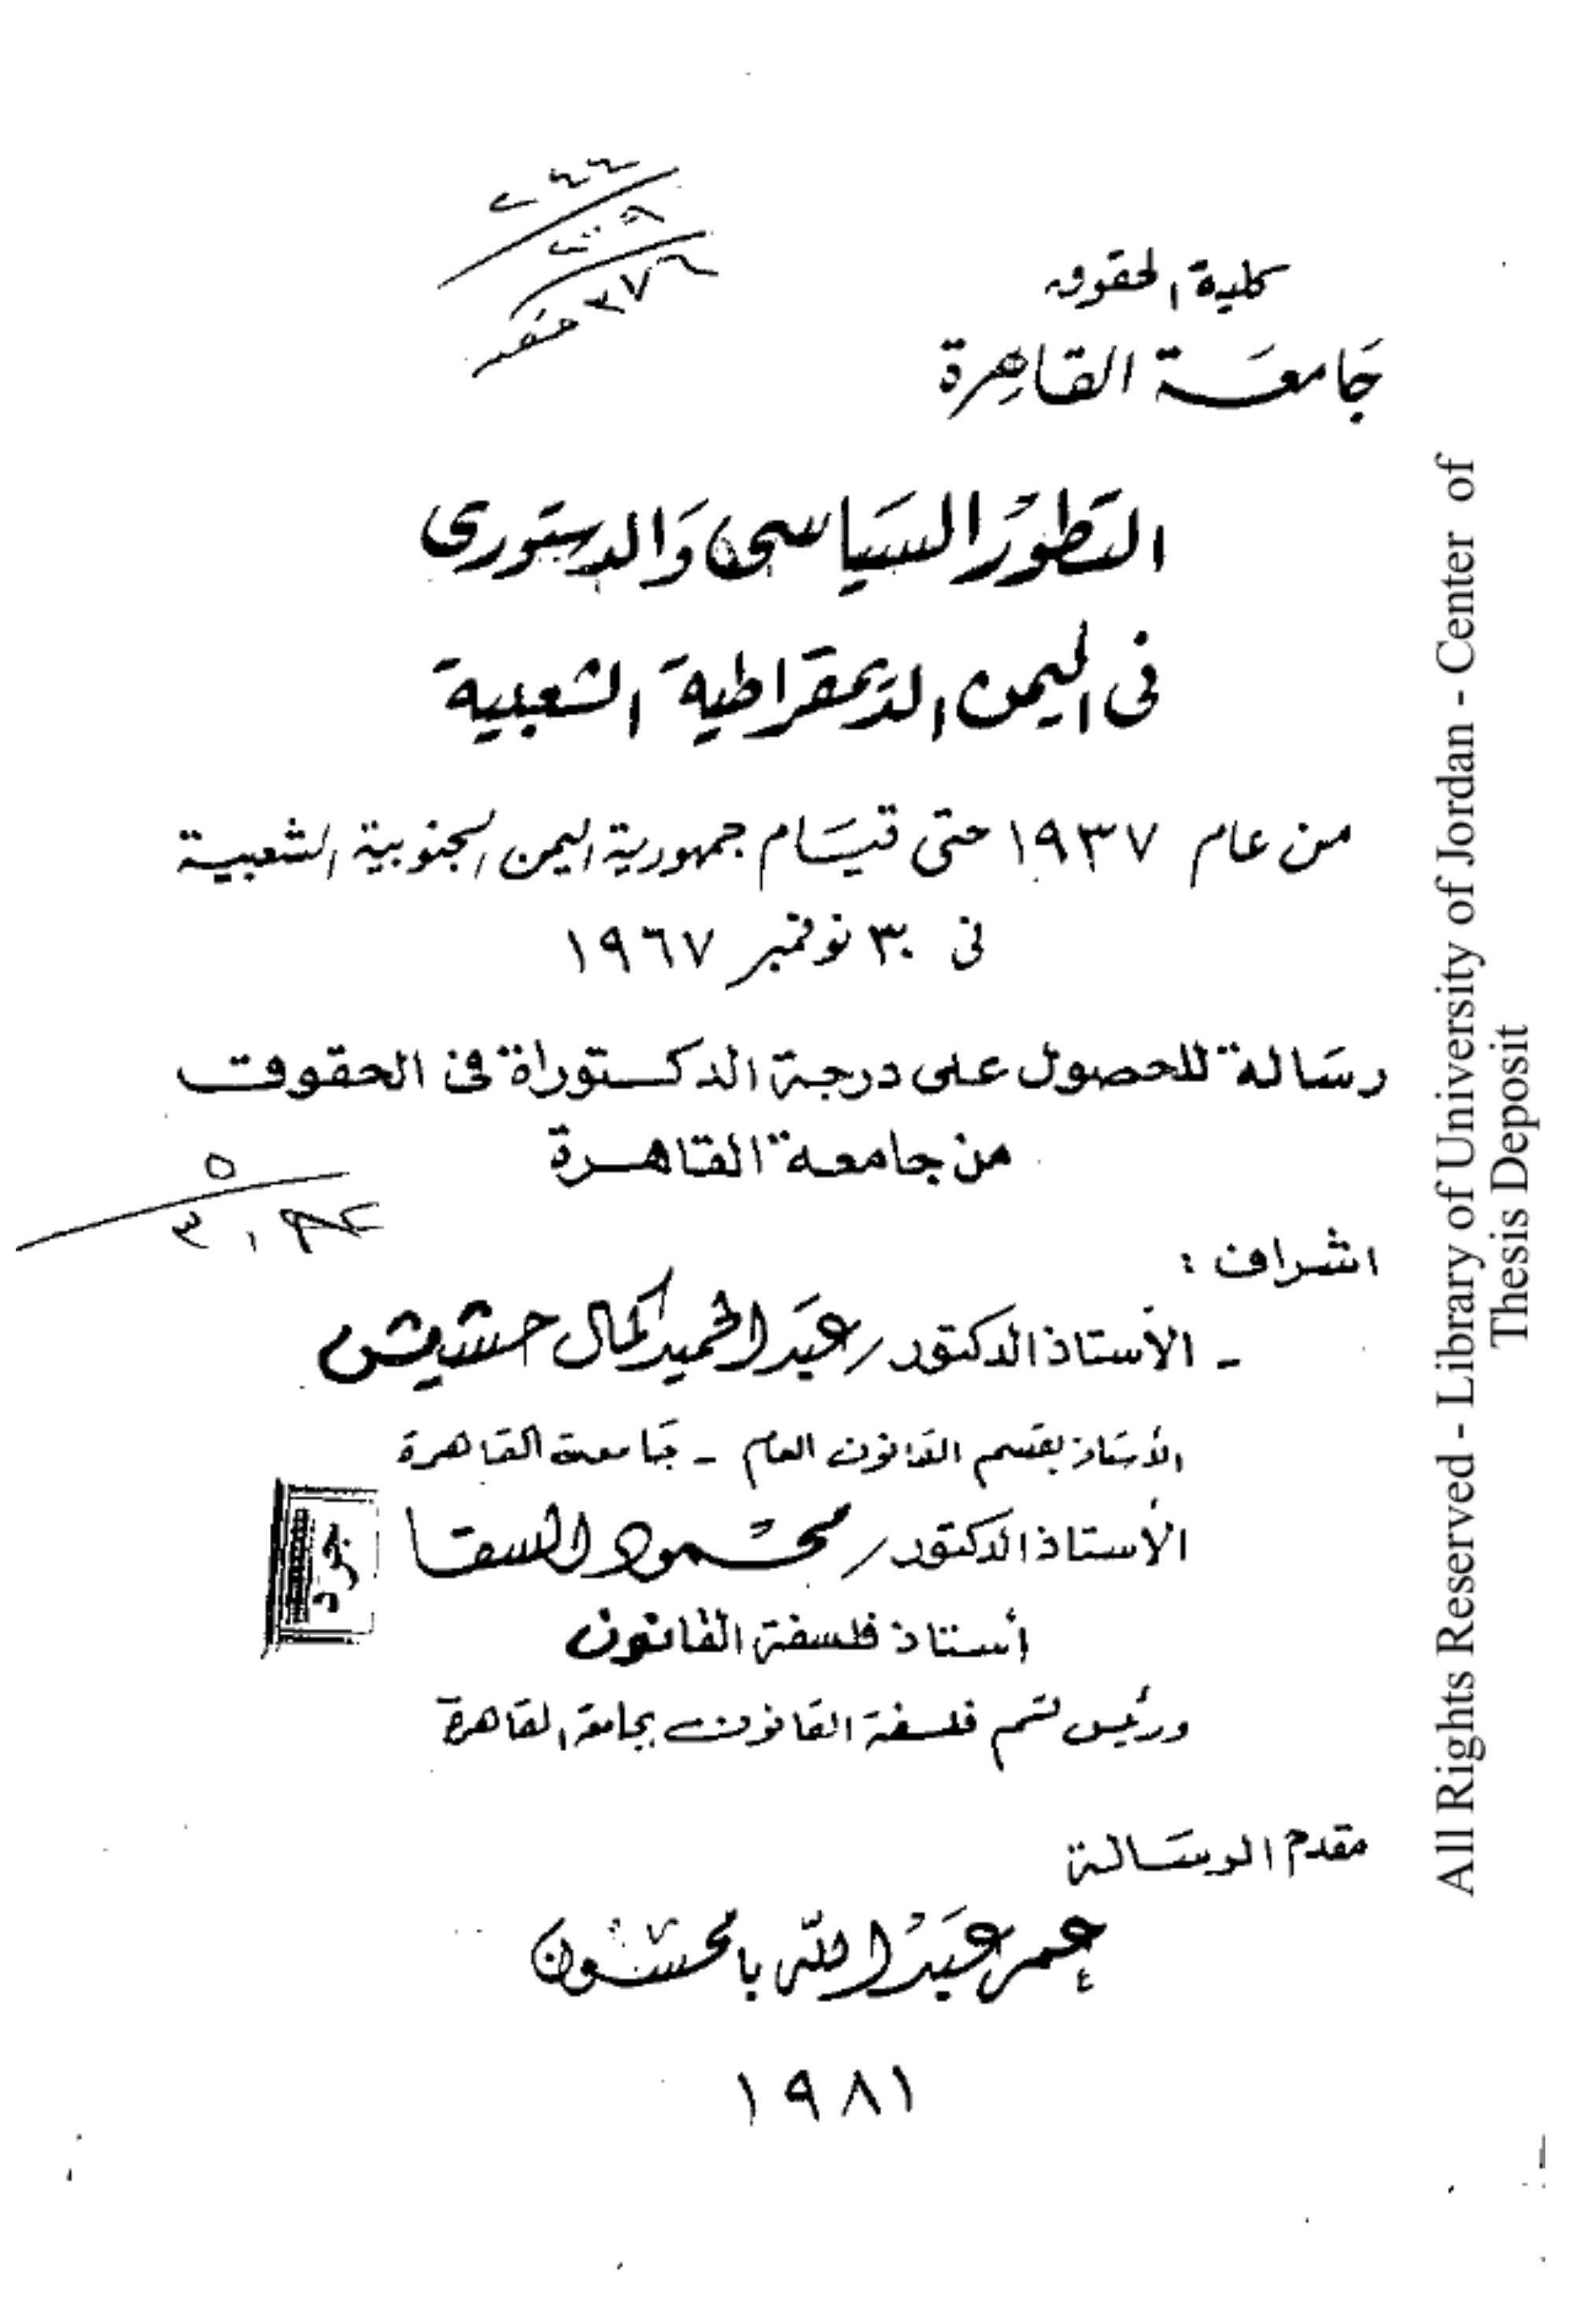 كلية الحقوق
جامعة القاهرة
التطور السياسى والدستورى
فى اليمن الديمقراطية الشعبية
من عام ١٩٣٧ حتى قيام جمهورية اليمن الجنوبية الشعبية
فى ٣٠ نوفمبر ١٩٦٧
رسالة للحصول على درجة الدكتوراة فى الحقوق
من جامعة القاهرة
اشراف :
- الأستاذ الدكتور / عبد الحميد كمال حشيش
الأستاذ بقسم القانون العام - جامعة القاهرة
الأستاذ الدكتور / محمود السقا
أستاذ فلسفة القانون
ورئيس قسم فلسفة القانون بجامعة القاهرة
مقدم الرسالة
عمر عبد الله بامحسون
١٩٨١
جرد
All Rights Reserved - Library of University of Jordan - Center of
Thesis Deposit